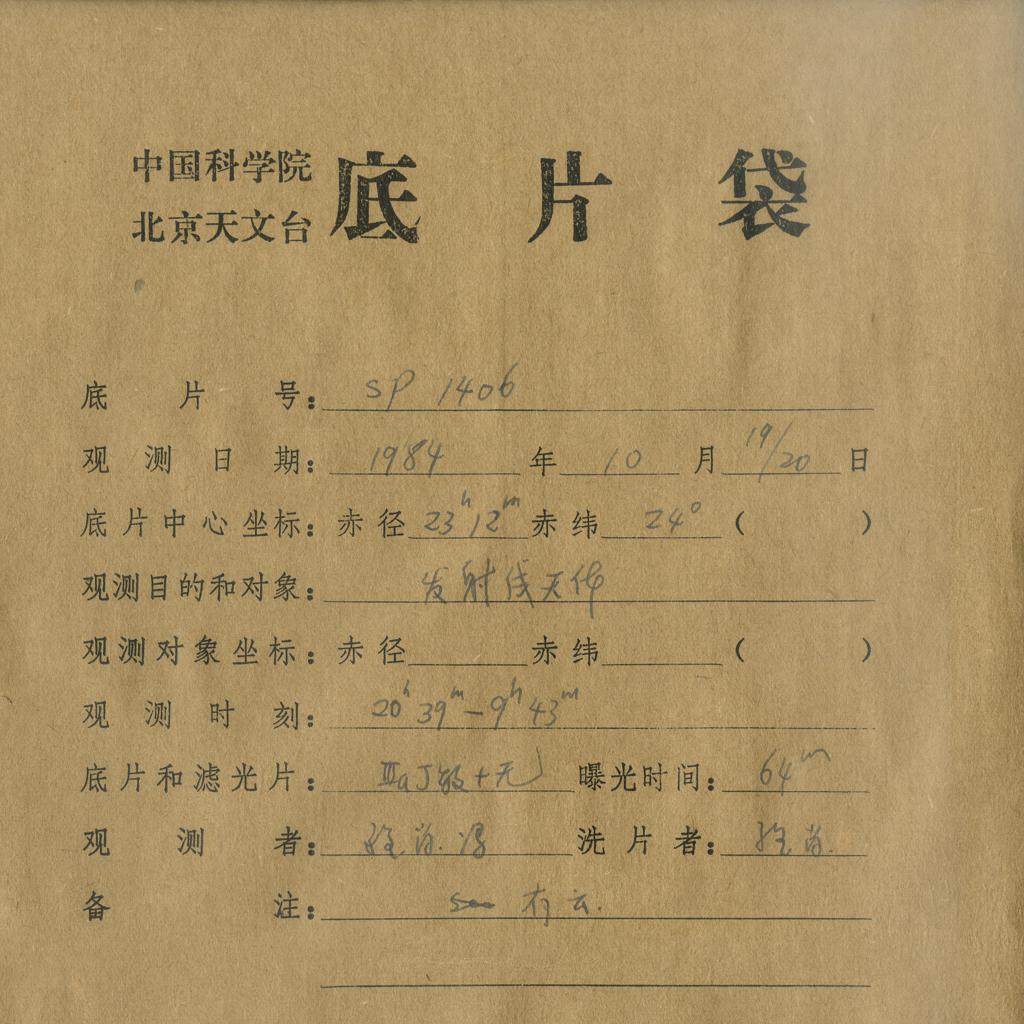 中国科学院
北京天文台
底片袋
底片号: SP 1406
观测日期: 1984 年 10 月 19/20 日
底片中心坐标: 赤径 23h12m 赤纬 24° ( )
观测目的和对象: 发射线天体
观测对象坐标: 赤径 赤纬 ( )
观测时刻: 20h 39m — 9h 43m
底片和滤光片: IIIaJ敏+无 曝光时间: 64m
观测者: 洗片者:
备注: 有云.